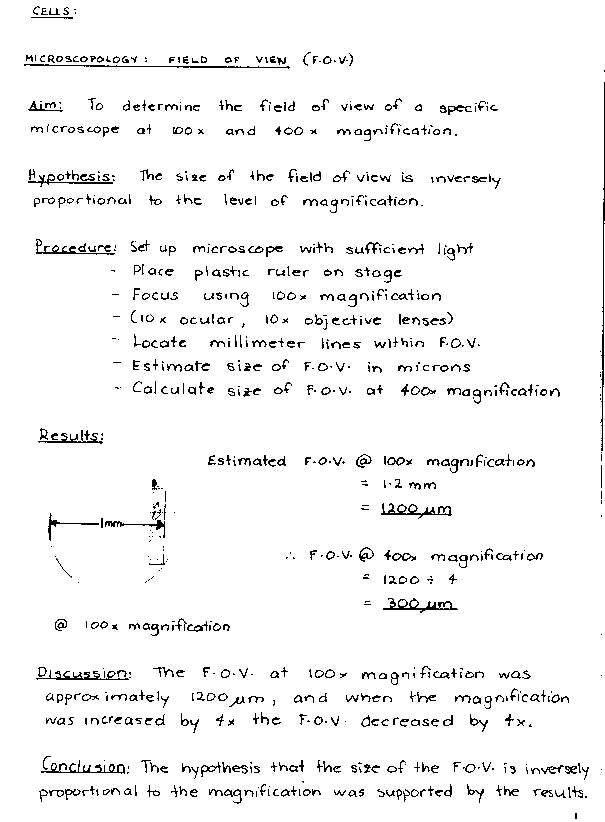 CELLS:
MICROSCOPOLOGY: FIELD OF VIEW (F.O.V.)
Aim: To determine the field of view of a specific
microscope at 100x and 400x magnification.
Hypothesis: The size of the field of view is inversely
proportional to the level of magnification.
Procedure: Set up microscope with sufficient light
- Place plastic ruler on stage
- Focus using 100x magnification
- (10x ocular, 10x objective lenses)
- Locate millimeter lines within F.O.V.
- Estimate size of F.O.V. in microns
- Calculate size of F.O.V. at 400x magnification
Results:
Estimated F.O.V. @ 100x magnification
= 1.2 mm
= 1200 µm
1mm
∴ F.O.V. @ 400x magnification
= 1200 ÷ 4
= 300 µm
@ 100x magnification
Discussion: The F.O.V. at 100x magnification was
approximately 1200 µm, and when the magnification
was increased by 4x the F.O.V. decreased by 4x.
Conclusion: The hypothesis that the size of the F.O.V. is inversely
proportional to the magnification was supported by the results.
1